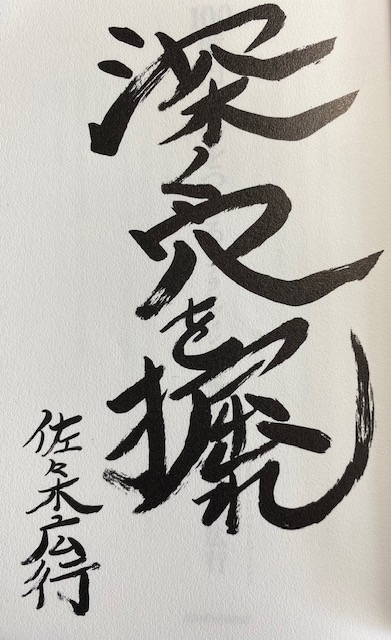 深く穴を掘れ
佐々木広行